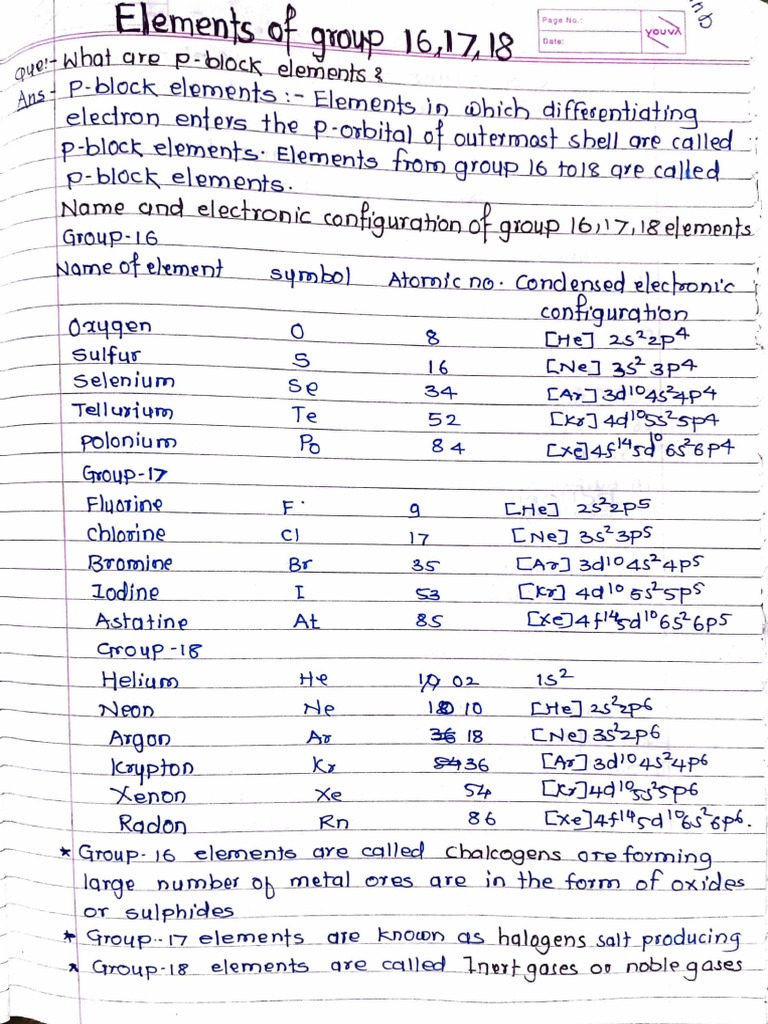 Elements of group 16,17,18
Page No.:
Date:
YOUVA
Que:- What are p-block elements?
Ans - P-block elements :- Elements in which differentiating
electron enters the p-orbital of outermost shell are called
p-block elements. Elements from group 16 to 18 are called
p-block elements.
Name and electronic configuration of group 16,17,18 elements
Group-16
Name of element symbol Atomic no. Condensed electronic
configuration
Oxygen O 8 [He] 2s²2p⁴
Sulfur S 16 [Ne] 3s² 3p⁴
Selenium Se 34 [Ar] 3d¹⁰4s²4p⁴
Tellurium Te 52 [Kr] 4d¹⁰5s²5p⁴
polonium Po 84 [Xe]4f¹⁴5d¹⁰6s²6p⁴
Group-17
Fluorine F 9 [He] 2s²2p⁵
chlorine Cl 17 [Ne] 3s²3p⁵
Bromine Br 35 [Ar] 3d¹⁰4s²4p⁵
Iodine I 53 [Kr] 4d¹⁰ 5s²5p⁵
Astatine At 85 [Xe]4f¹⁴5d¹⁰6s²6p⁵
Group-18
Helium He 02 1s²
Neon Ne 10 [He] 2s²2p⁶
Argon Ar 18 [Ne] 3s²2p⁶
Krypton Kr 36 [Ar] 3d¹⁰4s²4p⁶
Xenon Xe 54 [Kr]4d¹⁰5s²5p⁶
Radon Rn 86 [Xe]4f¹⁴5d¹⁰6s²6p⁶.
* Group-16 elements are called chalcogens ore forming
large number of metal ores are in the form of oxides
or sulphides
* Group-17 elements are known as halogens salt producing
* Group-18 elements are called Inert gases or noble gases